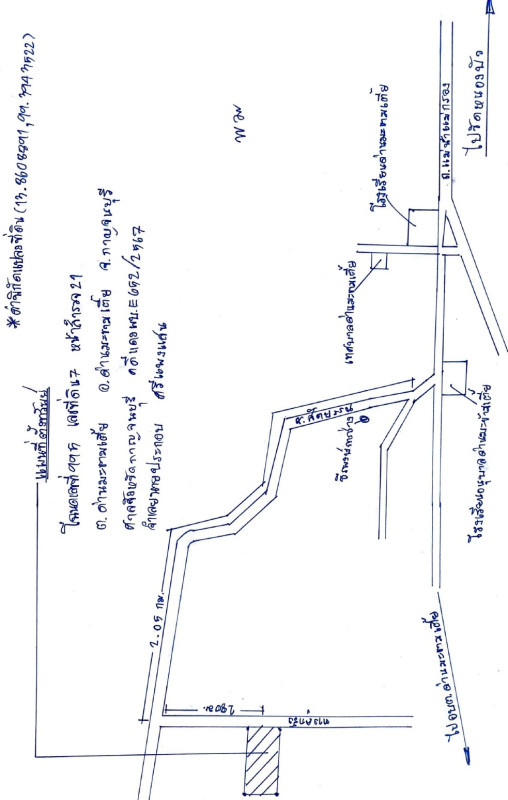 *ค่าพิกัดแปลงที่ดิน (13.8608891, 99.3943522)
แผนที่ตั้งทรัพย์
โฉนดเลขที่ เลขที่ดิน 7 หน้าสำรวจ 21
ต. ด่านมะขามเตี้ย อ. ด่านมะขามเตี้ย จ. กาญจนบุรี
ศาลจังหวัดกาญจนบุรี คดีแดง ผบ.E 652/2567
จำเลย นายประกอบ ศรีเพรชแสน
2.05 กม.
280 ม.
ทางลูกรัง
ซ.
@
เทศบาลด่านมะขามเตี้ย
โรงเรียนด่านมะขามเตี้ย
โรงเรียนอนุบาลด่านมะขามเตี้ย
ถ.แม่น้ำแม่กลอง
ไปวัดหนองบัว
ไปอบต.ด่านมะขามเตี้ย